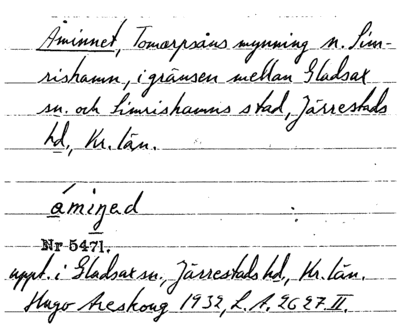 Åminnet, Tomarpsåns mynning n. Sim-
rishamn, i gränsen mellan Gladsax
sn. och Simrishamns stad, Järrestads
hd., Kr. län.
åmiŋəd
Nr 5471.
uppt. i Gladsax sn., Järrestads hd., Kr. län.
Hugo Areskoug 1932, L. A. 2627. II.